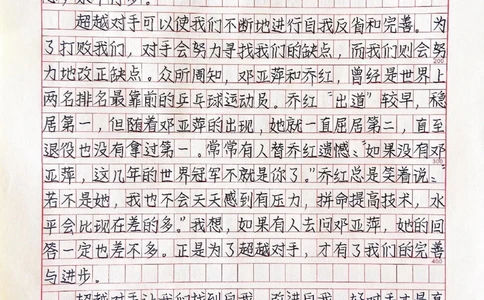 超越对手可以使我们不断地进行自我反省和完善。为
了打败我们，对手会努力寻找我们的缺点，而我们则会努
力地改正缺点。众所周知，邓亚萍和乔红，曾经是世界上
200
两名排名最靠前的乒乓球运动员。乔红“出道”较早，稳
居第一，但随着邓亚萍的出现，她就一直屈居第二，直至
退役也没有拿过第一。常常有人替乔红遗憾：“如果没有邓
300
亚萍，这几年的世界冠军不就是你了。”乔红总是笑着说：“
若不是她，我也不会天天感到有压力，拼命提高技术，水
平会比现在差的多。”我想，如果有人去问邓亚萍，她的回
答一定也差不多。正是为了超越对手，才有了我们的完善
400
与进步。
超越对手让我们找到自我，改进自我，好对手才是真